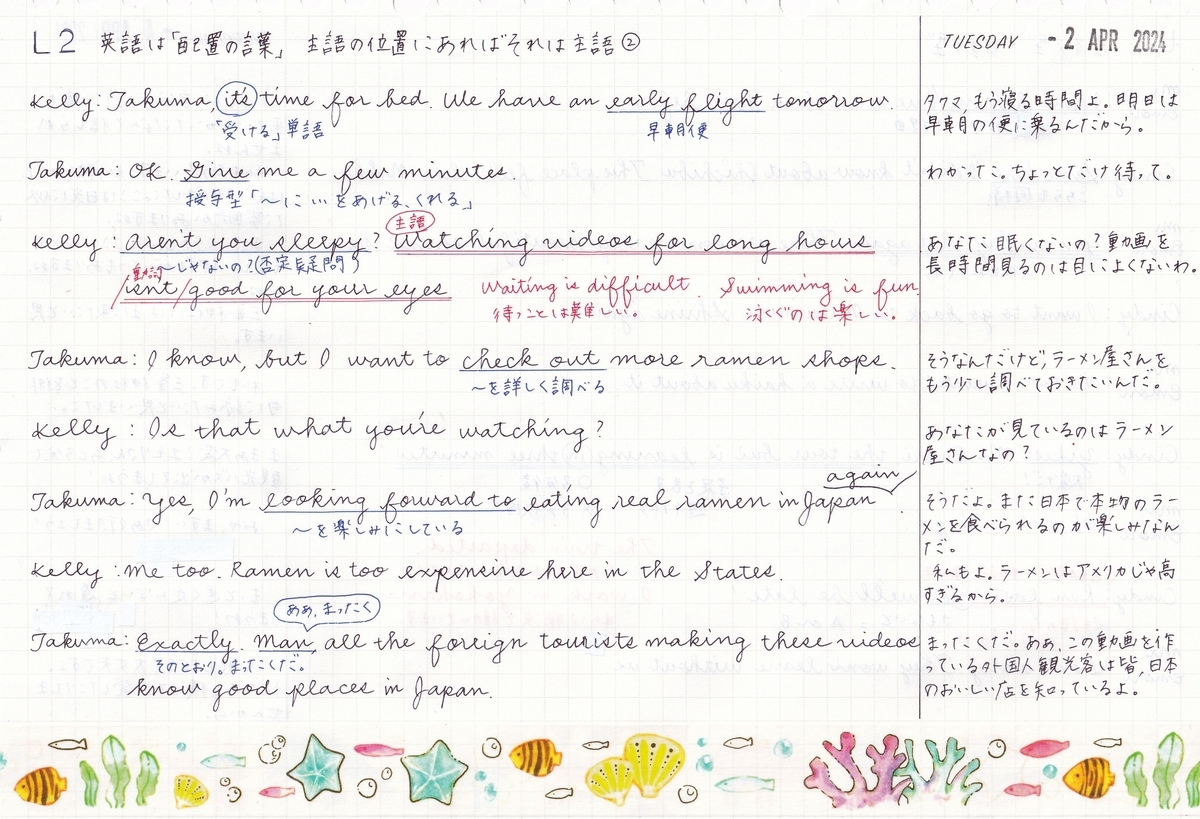 L2 英語は「配置の言葉」 主語の位置にあればそれは主語②
TUESDAY - 2 APR 2024
Kelly: Takuma, it's time for bed. We have an early flight tomorrow.
「受ける」単語
早朝便
タクマ, もう寝る時間よ。明日は
早朝の便に乗るんだから。
Takuma: OK. Give me a few minutes.
授与型「〜に…をあげる、くれる」
わかった。ちょっとだけ待って。
主語
Kelly: Aren't you sleepy? Watching videos for long hours
〜じゃないの?(否定疑問)
動詞
isn't good for your eyes
Waiting is difficult. Swimming is fun
待つことは難しい。 泳ぐのは楽しい。
あなた眠くないの?動画を
長時間見るのは目によくないわ。
Takuma: I know, but I want to check out more ramen shops.
〜を詳しく調べる
そうなんだけど, ラーメン屋さんを
もう少し調べておきたいんだ。
Kelly: Is that what you're watching?
あなたが見ているのはラーメン
屋さんなの?
again
Takuma: Yes, I'm looking forward to eating real ramen in Japan
〜を楽しみにしている
そうだよ。また日本で本物のラー
メンを食べられるのが楽しみなん
だ。
Kelly: Me too. Ramen is too expensive here in the States.
私もよ。ラーメンはアメリカじゃ高
すぎるから。
ああ, まったく
Takuma: Exactly. Man, all the foreign tourists making these videos
そのとおり。まったくだ。
know good places in Japan.
まったくだ。ああ, この動画を作
っている外国人観光客は皆, 日本
のおいしい店を知っているよ。